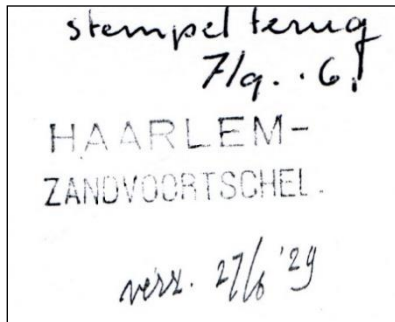 stempel terug
7/9. .6.
HAARLEM-
ZANDVOORTSCHEL.
verz. 27/6 '29